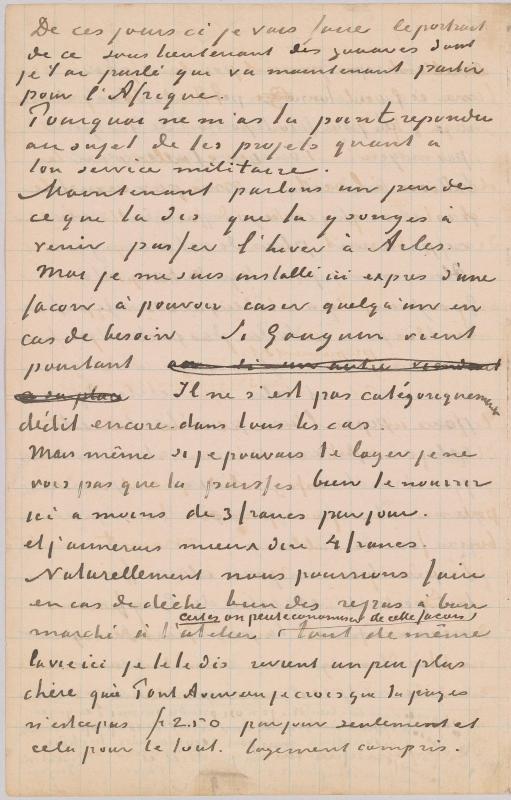 De ces jours ci je vais faire le portrait
de ce sous lieutenant des zouaves dont
je t'ai parlé qui va maintenant partir
pour l'Afrique.
Pourquoi ne m'as tu point repondu
au sujet de tes projets quant a
ton service militaire.
Maintenant parlons un peu de
ce que tu dis que tu y songes à
venir passer l'hiver à Arles.
Moi je me suis installé ici expres d'une
facon à pouvoir caser quelqu'un en
cas de besoin Si Gauguin vient
pourtant ou si un autre viendrait
a sa place Il ne s'est pas catégoriquement
dédit encore dans tous les cas.
Mais même si je pouvais te loger je ne
vois pas que tu puisses bien te nourrir
ici a moins de 3 francs par jour.
et j'aimerais mieux dire 4 francs.
Naturellement nous pourrions faire
en cas de dèche bien des repas à bon
certes on peut economiser de cette facon
marché à l'atelier tout de même
la vie ici je te le dis revient un peu plus
chère qu'à Pont Aven ou je crois que tu payes
n'est ce pas fr 2.50 par jour seulement et
cela pour le tout. logement compris.